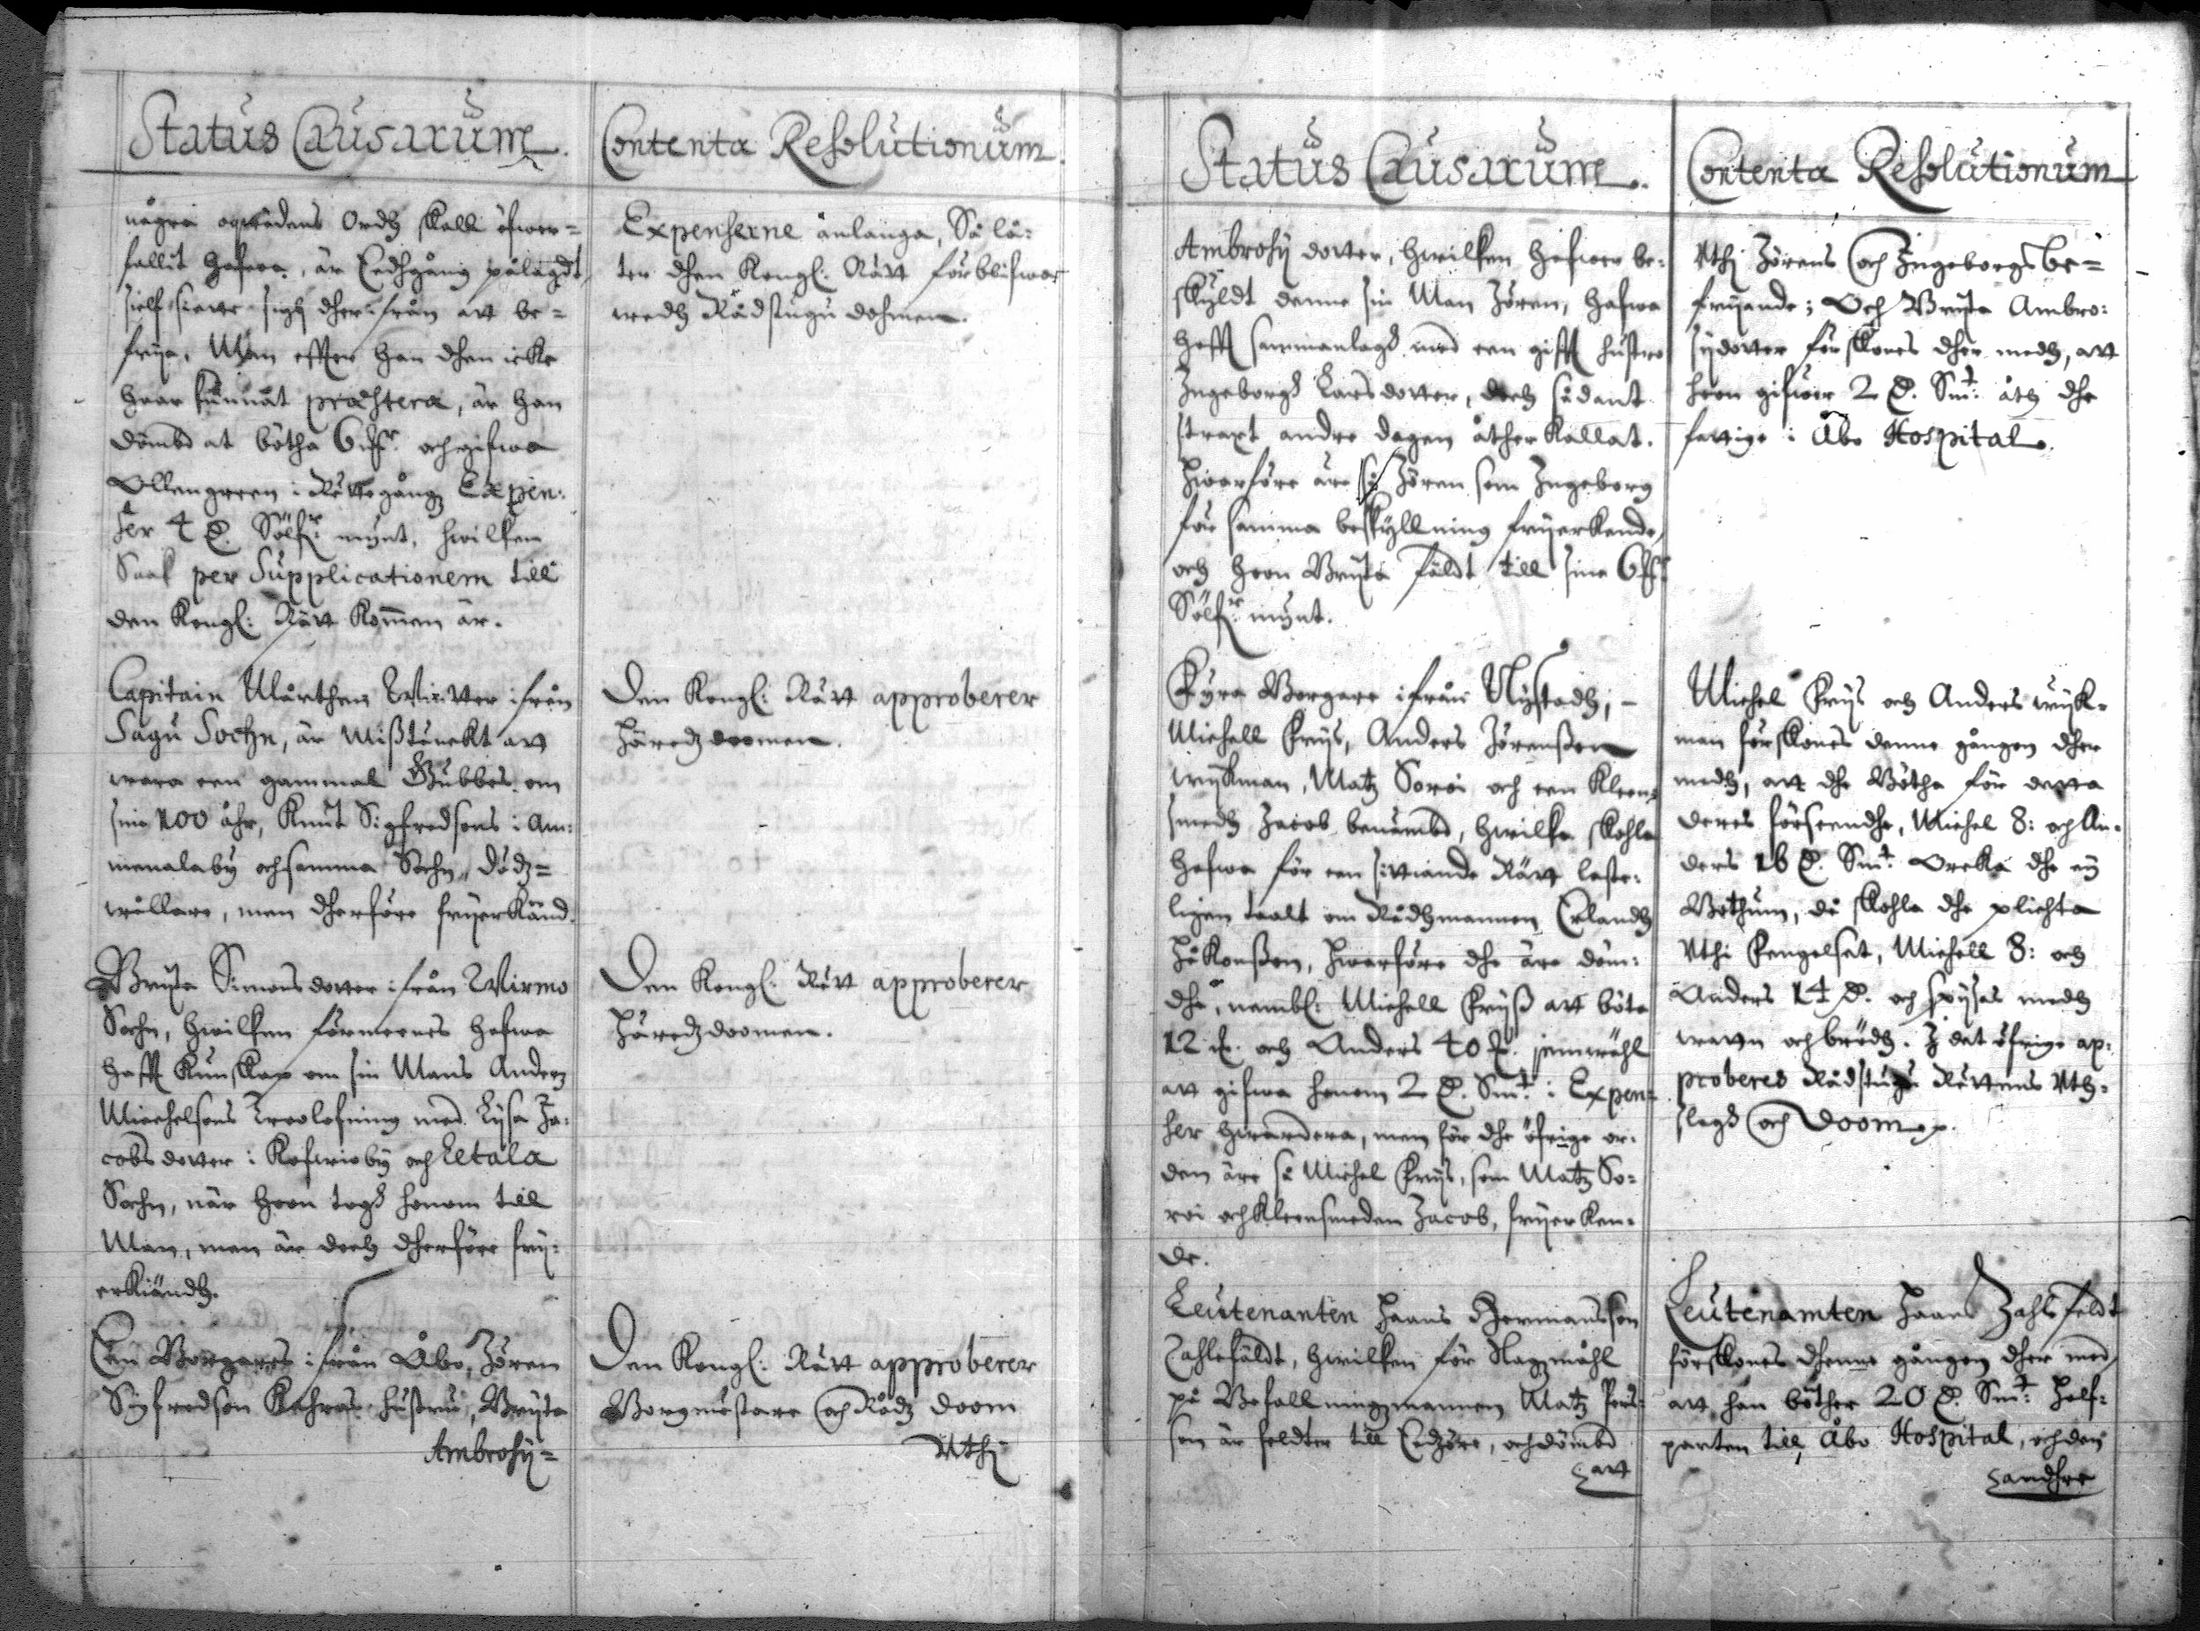 Status Causarum.
några oqwädens Ordh skall öfwer=
fallit hafwa, är Eedhgång pålagdt
sielf siette sigh dher ifrån att be=
frija, Män effter han dhen icke
haar kunnat præstera, är han
dömbd at bötha 6 mkr och gifwa
Ollengreen i Rättegångz Expen:
ser 4 D. Sölfr mynt, hwilken
Saak per Supplicationem till
den Kongl: Rätt kommen är.
Capitain Mårthen Winter ifrån
Sagu Sochn, är Mißtenckt att
wara een gammal Gubbes om
sine 100 åhr, Knut Sigfredsons i Am:
menalaby och samma Sochn, dödz=
wållare, men dherföre frijerkänd.
Brijta Simons dotter ifrån Wirmo
Sochn, hwilken förmeenes hafwa
hafft Kunskap om sin Mans Anders
Michelsons Troolofning med Lijsa Ja:
cobs dotter i Kafwrioby och Letala
Sochn, när hoon togh honom till
Man, men är doch dherföre frij:
erkiändh.
Een Borgares ifrån Åbo, Jören
Sigfredson Kahras hustru, Brijta
Ambrosij=
Contenta Resolutionum.
Expenserne anlanga, Så lå:
ter dhen Kongl: Rätt förblifwa
wedh Rådstugu dohmen.
Den Kongl: Rätt approberer
Häredz doomen.
Den Kongl: Rätt approberer
Häredz doomen.
Den Kongl: Rätt approberer
Borgmästare och Rådz doom
Uthi
Status Causarum.
Ambrosij dotter, hwilken hafwer be:
skyldt denne sin Man Jören, hafwa
hafft sammanlagh med een gifft hustro
Ingeborgh Larsdotter, doch sådant
straxt andre dagen åther kallat.
Hwarföre äre så Jören som Ingeborg
för samma beskyllning frijerkende,
och hoon Brijta fäldt till sine 6 mk
Sölfr mynt.
Fyra Borgare ifrån Nystadh,
Michell Frijs, Anders Jörenßon
Wijkman, Matz Soroi och een Kleen=
smedh Jacob benembd, hwilka skohla
hafwa för een sittiande Rätt laste:
ligen taalt om Rådhmannen Erlandh
Håkonßon, Hwarföre dhe äre döm:
dhe, nembl: Michell Frijß att böta
12 mk. och Anders 40 mk. jemwähl
att gifwa honom 2 D. Smt: i Expen=
ser hwardera, men för dhe öfrige or:
den äre så Michel Frijs, som Matz So=
roi och Kleensmeden Jacob, frijerken=
de.
Leutenanten Hans Hermansson
Zahlefäldt, hwilken för Hugzmåhl
på Befallningzmannen Matz Pers=
son är feldter till Eedzöre, och dömbd
att
Contenta Resolutionum
Uthi Jörens och Ingeborgs be=
frijande; Och Brijta Ambro:
sijdotter förskones dher medh, att
hoon gifwer 2 D. Smt: åth dhe
fattige i Åbo Hospital.
Michel Frijs och Anders Wijk=
man förskones denne gången dher
medh, att dhe Bötha för detta
deres förseende, Michel 8: och An=
ders 16 D. Smt: Orcka dhe ey
Bothum, då skohla dhe plichta
Uthi Fengelset, Michell 8: och
Anders 14 D. och spijsas medh
watn och brödh. I det öfrige ap:
proberes Rådstugu Rättens Uth=
slagh och Doom p.
Leutenamten Hans Zahlsfeldt
förskones dhenne gången dher med,
att han böther 20 D. Smt: Half=
parten till Åbo Hospital, och den
andhre